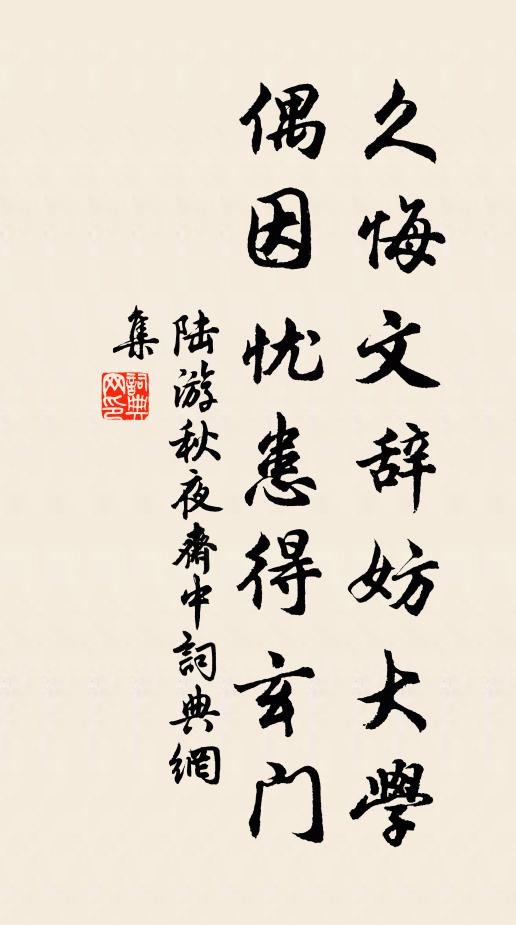 久悔文辞妨大學
偶因忧患得玄门
陆游秋夜齋中詞典網
集
詞典网印